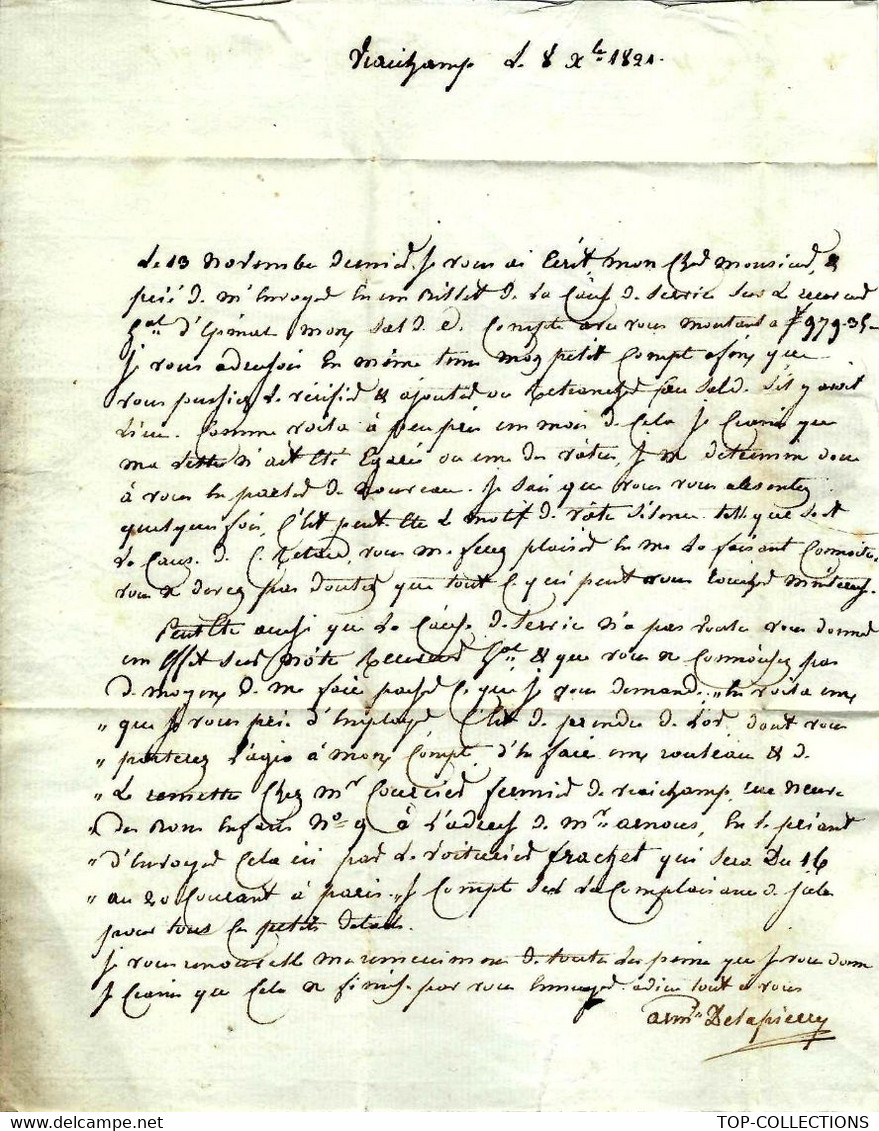 Vraichamp Le 8 Xbre 1821.
Le 13 Novembre dernier Je vous ai Ecrit, mon Cher Monsieur, &
prié de m'Envoyer En un Billet de La Caisse de Service sur Le receveur
Gal d'Epinal mon solde de Compte avec vous montant a F 979.35
Je vous adressois En même tems mon petit Compte afin que
vous pussiez Le vérifier & ajouter ou retrancher au solde s'il y avoit
Lieu. Comme voila à peu près un mois de Cela Je Crains que
ma Lettre n'ait Eté Egarée ou une des vôtres, Je me determine donc
à vous En parler de nouveau. Je sais que vous vous absentez
quelques fois, C'Est peut Etre Le motif de votre silence. telle que soit
La Cause de Ce Retard, vous me ferez plaisir En me La faisant Connoitre
vous ne devez pas douter que tout Ce qui peut vous toucher m'intéresse.
Peut Etre aussi que La Caisse de Service n'a pas voulu vous donner
un Effet sur nôtre Receveur Gal & que vous ne Connoissez pas
de moyen de me faire passer Ce que Je vous demande. „ En voila un
„ que Je vous prie d'Employer C'Est de prendre de L'or, dont vous
„ porterez L'agio à mon Compte, d'En faire un rouleau & de
„ Le remettre Chez Mr Courcier fermier de vraichamp, rue Neuve
„ des Bons Enfans No 9 à L'adresse de Mr arnous, En Le priant
„ d'Envoyer Cela ici par Le Voiturier frachet qui sera Du 16
„ au 20 Courant à paris. „ Je Compte sur La Complaisance de Jules
pour tous Ces petits détails.
Je vous renouvelle mes remerciemens de toutes Les peines que Je vous donne
Je Crains que Cela ne finisse par vous Ennuyer. adieu tout à vous
Delapierre
TOP-COLLECTIONS